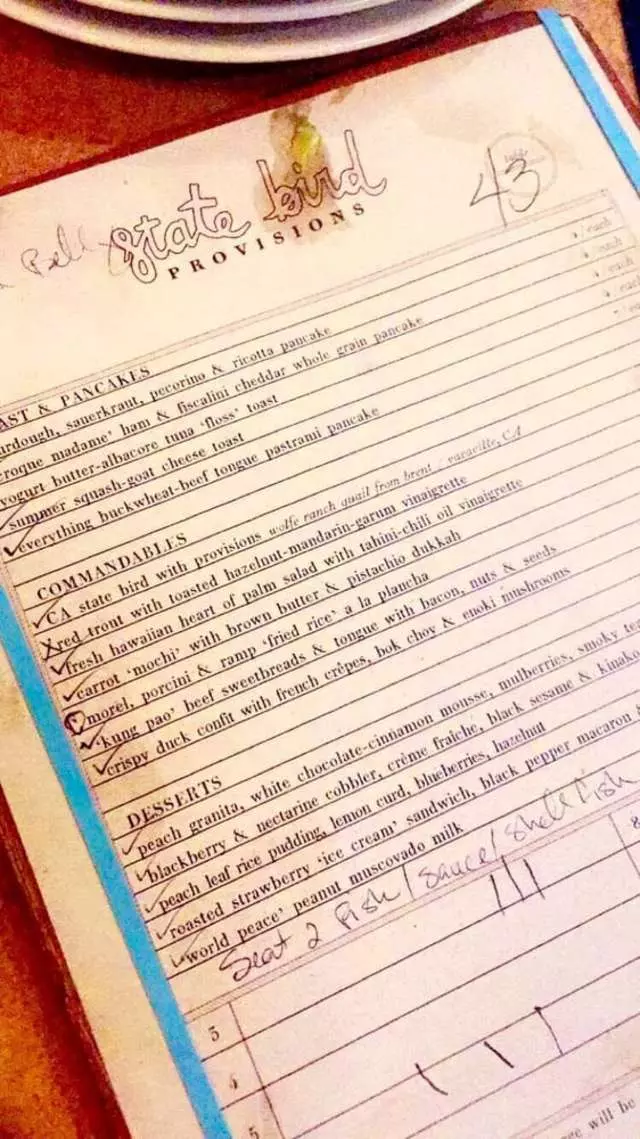 state bird
PROVISIONS
43
AST & PANCAKES
urdough, sauerkraut, pecorino & ricotta pancake
croque madame' ham & fiscalini cheddar whole grain pancake
yogurt butter-albacore tuna 'floss' toast
summer squash-goat cheese toast
everything buckwheat-beef tongue pastrami pancake
/each
/each
/each
/each
COMMANDABLES
CA state bird with provisions wolfe ranch quail from brent / vacaville, CA
red trout with toasted hazelnut-mandarin-garum vinaigrette
fresh hawaiian heart of palm salad with tahini-chili oil vinaigrette
carrot 'mochi' with brown butter & pistachio dukkah
morel, porcini & ramp 'fried rice' a la plancha
'kung pao' beef sweetbreads & tongue with bacon, nuts & seeds
crispy duck confit with french crêpes, bok choy & enoki mushrooms
DESSERTS
peach granita, white chocolate-cinnamon mousse, mulberries, smoky tea
blackberry & nectarine cobbler, crème fraîche, black sesame & kinako
peach leaf rice pudding, lemon curd, blueberries, hazelnut
roasted strawberry 'ice cream' sandwich, black pepper macaron &
'world peace' peanut muscovado milk
Seat 2 Fish/Sauce/Shell Fish
8
3
4
5
will be